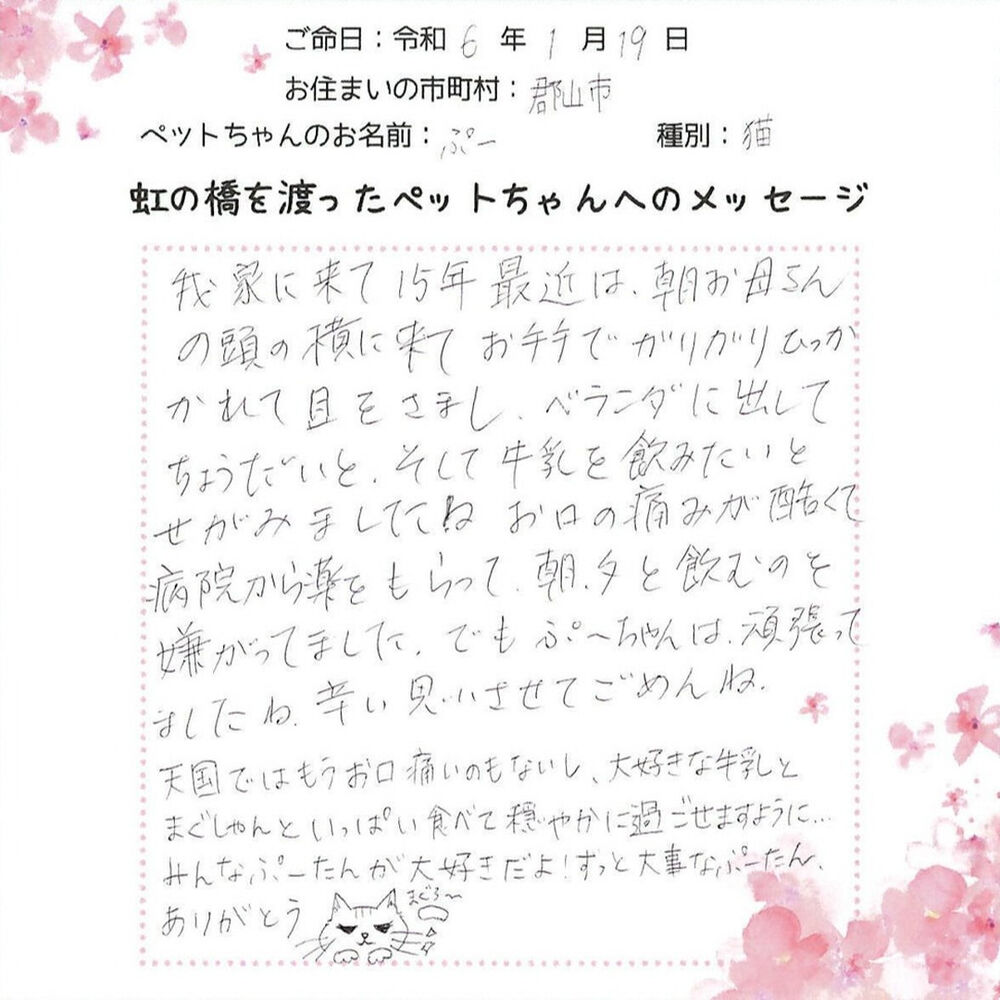 ご命日：令和 6 年 1 月 19 日
お住まいの市町村：郡山市
ペットちゃんのお名前：ぷー 種別：猫
虹の橋を渡ったペットちゃんへのメッセージ
我家に来て15年 最近は、朝お母さん
の頭の横に来て お手手でガリガリひっか
かれて目をさまし、ベランダに出して
ちょうだいと、そして牛乳を飲みたいと
せがみましたね お口の痛みが酷くて
病院から薬をもらって、朝、夕と飲むのを
嫌がってました、でもぷーちゃんは、頑張って
ましたね、辛い思いさせてごめんね、
天国ではもうお口痛いのもないし、大好きな牛乳と
まぐしゃんといっぱい食べて穏やかに過ごせますように…
みんなぷーたんが大好きだよ！ずっと大事なぷーたん、
ありがとう
まぐろ〜